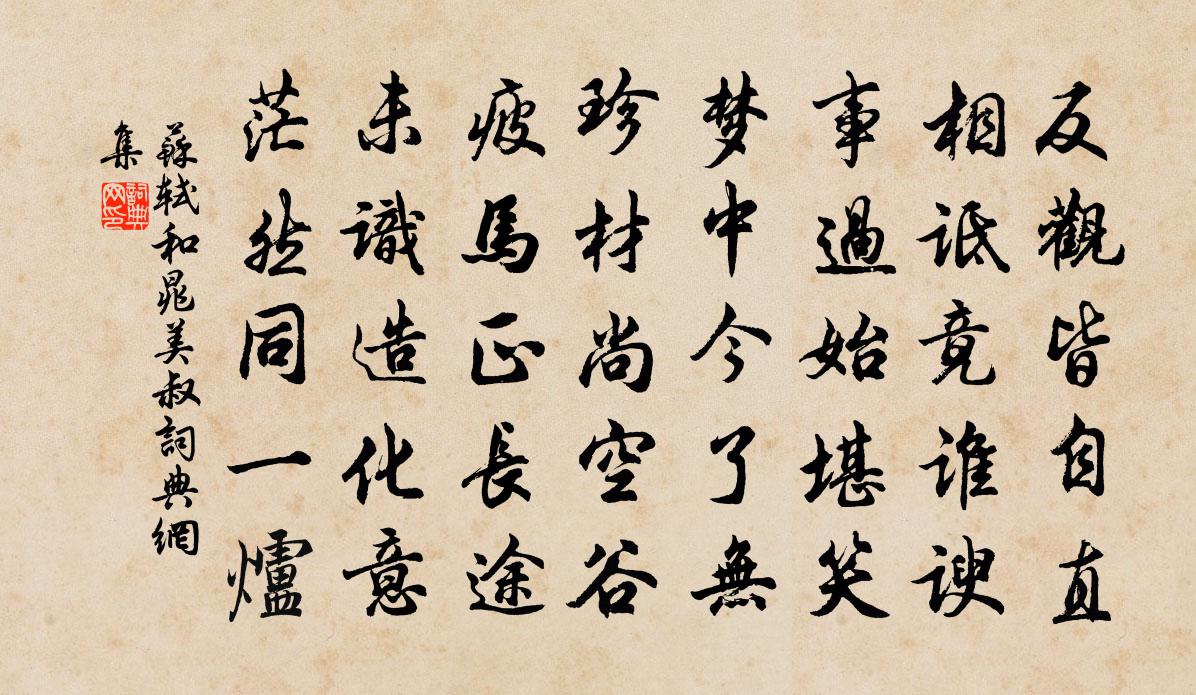 反觀皆自直
相詆竟誰諛
事過始堪笑
梦中今了無
珍材尚空谷
疲馬正長途
未識造化意
茫然同一爐
蘇軾和晁美叔詞典網
集
詞典
网印